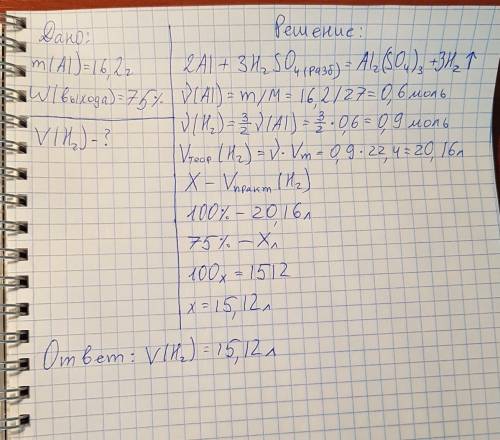 Дано:
m(Al)=16,2г
W(выхода)=75%
V(H₂)-?
Решение:
2Al + 3H₂SO₄(разб) = Al₂(SO₄)₃ + 3H₂↑
ν(Al) = m/M = 16,2/27 = 0,6 моль
ν(H₂) = 3/2 ν(Al) = 3/2 · 0,6 = 0,9 моль
Vтеор(H₂) = ν · Vm = 0,9 · 22,4 = 20,16л
X – Vпракт(H₂)
100% – 20,16л
75% – Xл
100x = 1512
x = 15,12л
Ответ: V(H₂) = 15,12л